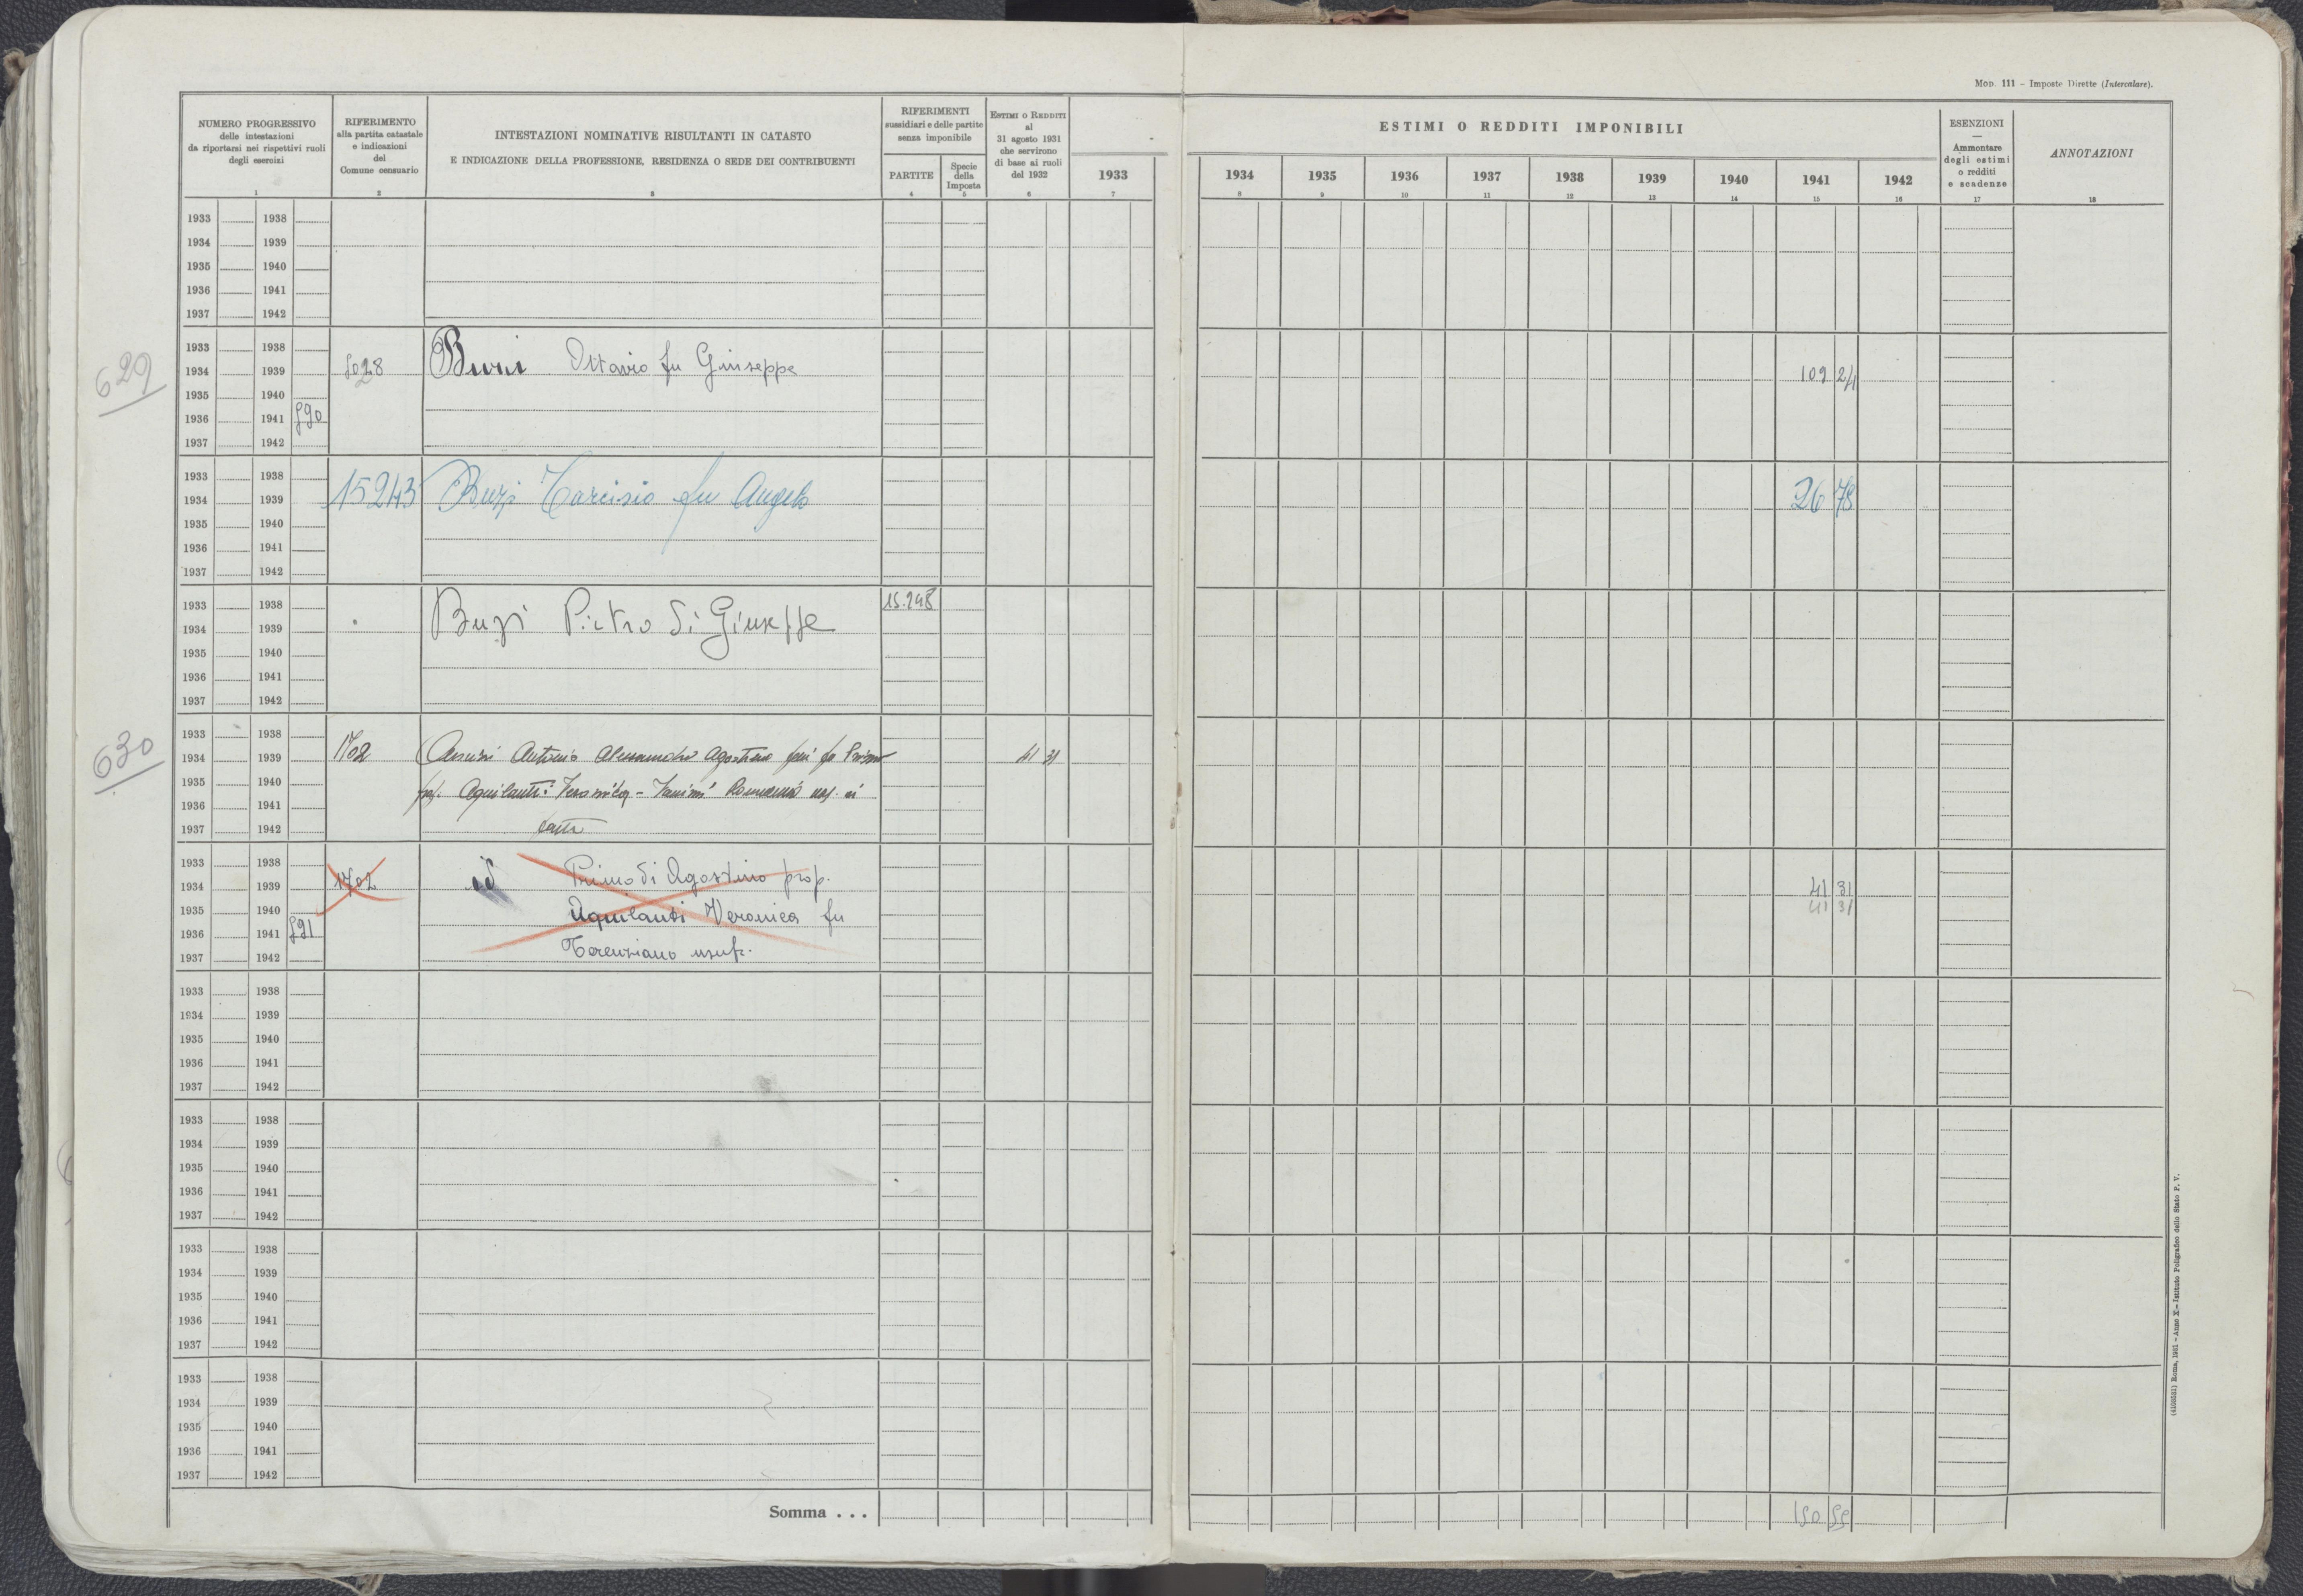 Mod. 111 – Imposte Dirette (Intercalare).
NUMERO PROGRESSIVO
delle intestazioni
da riportarsi nei rispettivi ruoli
degli esercizi
1
RIFERIMENTO
alla partita catastale
e indicazioni
del
Comune censuario
2
INTESTAZIONI NOMINATIVE RISULTANTI IN CATASTO
E INDICAZIONE DELLA PROFESSIONE, RESIDENZA O SEDE DEI CONTRIBUENTI
3
RIFERIMENTI
sussidiari e delle partite
senza imponibile
PARTITE
4
Specie
della
Imposta
5
ESTIMI O REDDITI
al
31 agosto 1931
che servirono
di base ai ruoli
del 1932
6
1933
7
ESTIMI O REDDITI IMPONIBILI
1934 1935 1936 1937 1938 1939 1940 1941 1942
8 9 10 11 12 13 14 15 16
ESENZIONI
—
Ammontare
degli estimi
o redditi
e scadenze
17
ANNOTAZIONI
18
1933 1938
1934 1939
1935 1940
1936 1941
1937 1942
629
1933 1938
1934 1939 Ottavio fu Giuseppe 109 24
1935 1940
1936 1941
1937 1942
1933 1938
1934 1939 15243 Buzi Tarcisio fu Angelo 26 78
1935 1940
1936 1941
1937 1942
1933 1938 15.248
1934 1939 Buzi Pietro di Giuseppe
1935 1940
1936 1941
1937 1942
630
1933 1938
1934 1939 1702 Antonio Alessandro Agostino fu Primo 41 31
1935 1940
1936 1941 Aquilanti Veronica
1937 1942
1933 1938
1934 1939 1702 id Primo di Agostino prop. 41 31
1935 1940 Aquilanti Veronica fu 41 31
1936 1941
1937 1942 Terenziano usuf.
1933 1938
1934 1939
1935 1940
1936 1941
1937 1942
1933 1938
1934 1939
1935 1940
1936 1941
1937 1942
1933 1938
1934 1939
1935 1940
1936 1941
1937 1942
1933 1938
1934 1939
1935 1940
1936 1941
1937 1942
Somma . . .
(4103531) Roma, 1931 – Anno X – Istituto Poligrafico dello Stato P. V.